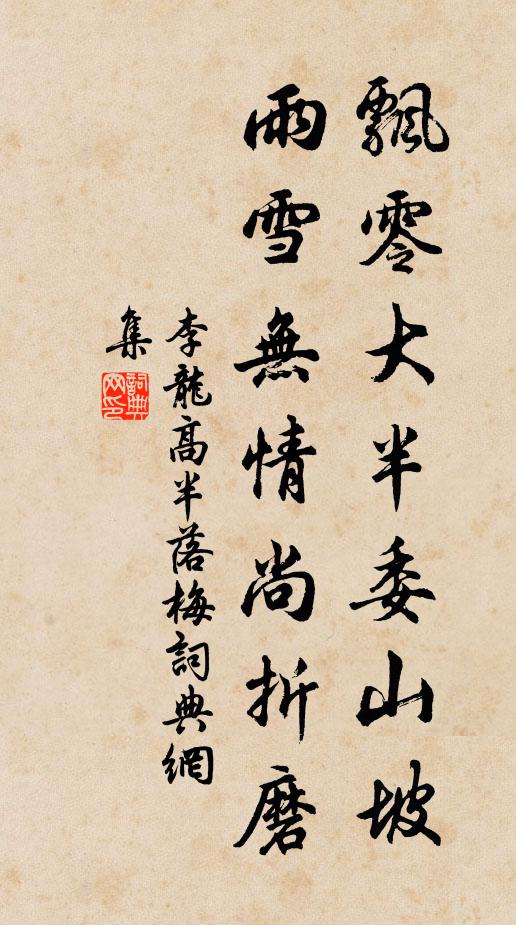 飄零大半委山坡
雨雪無情尚折磨
李龍高半落梅詞典網
集
詞典网印